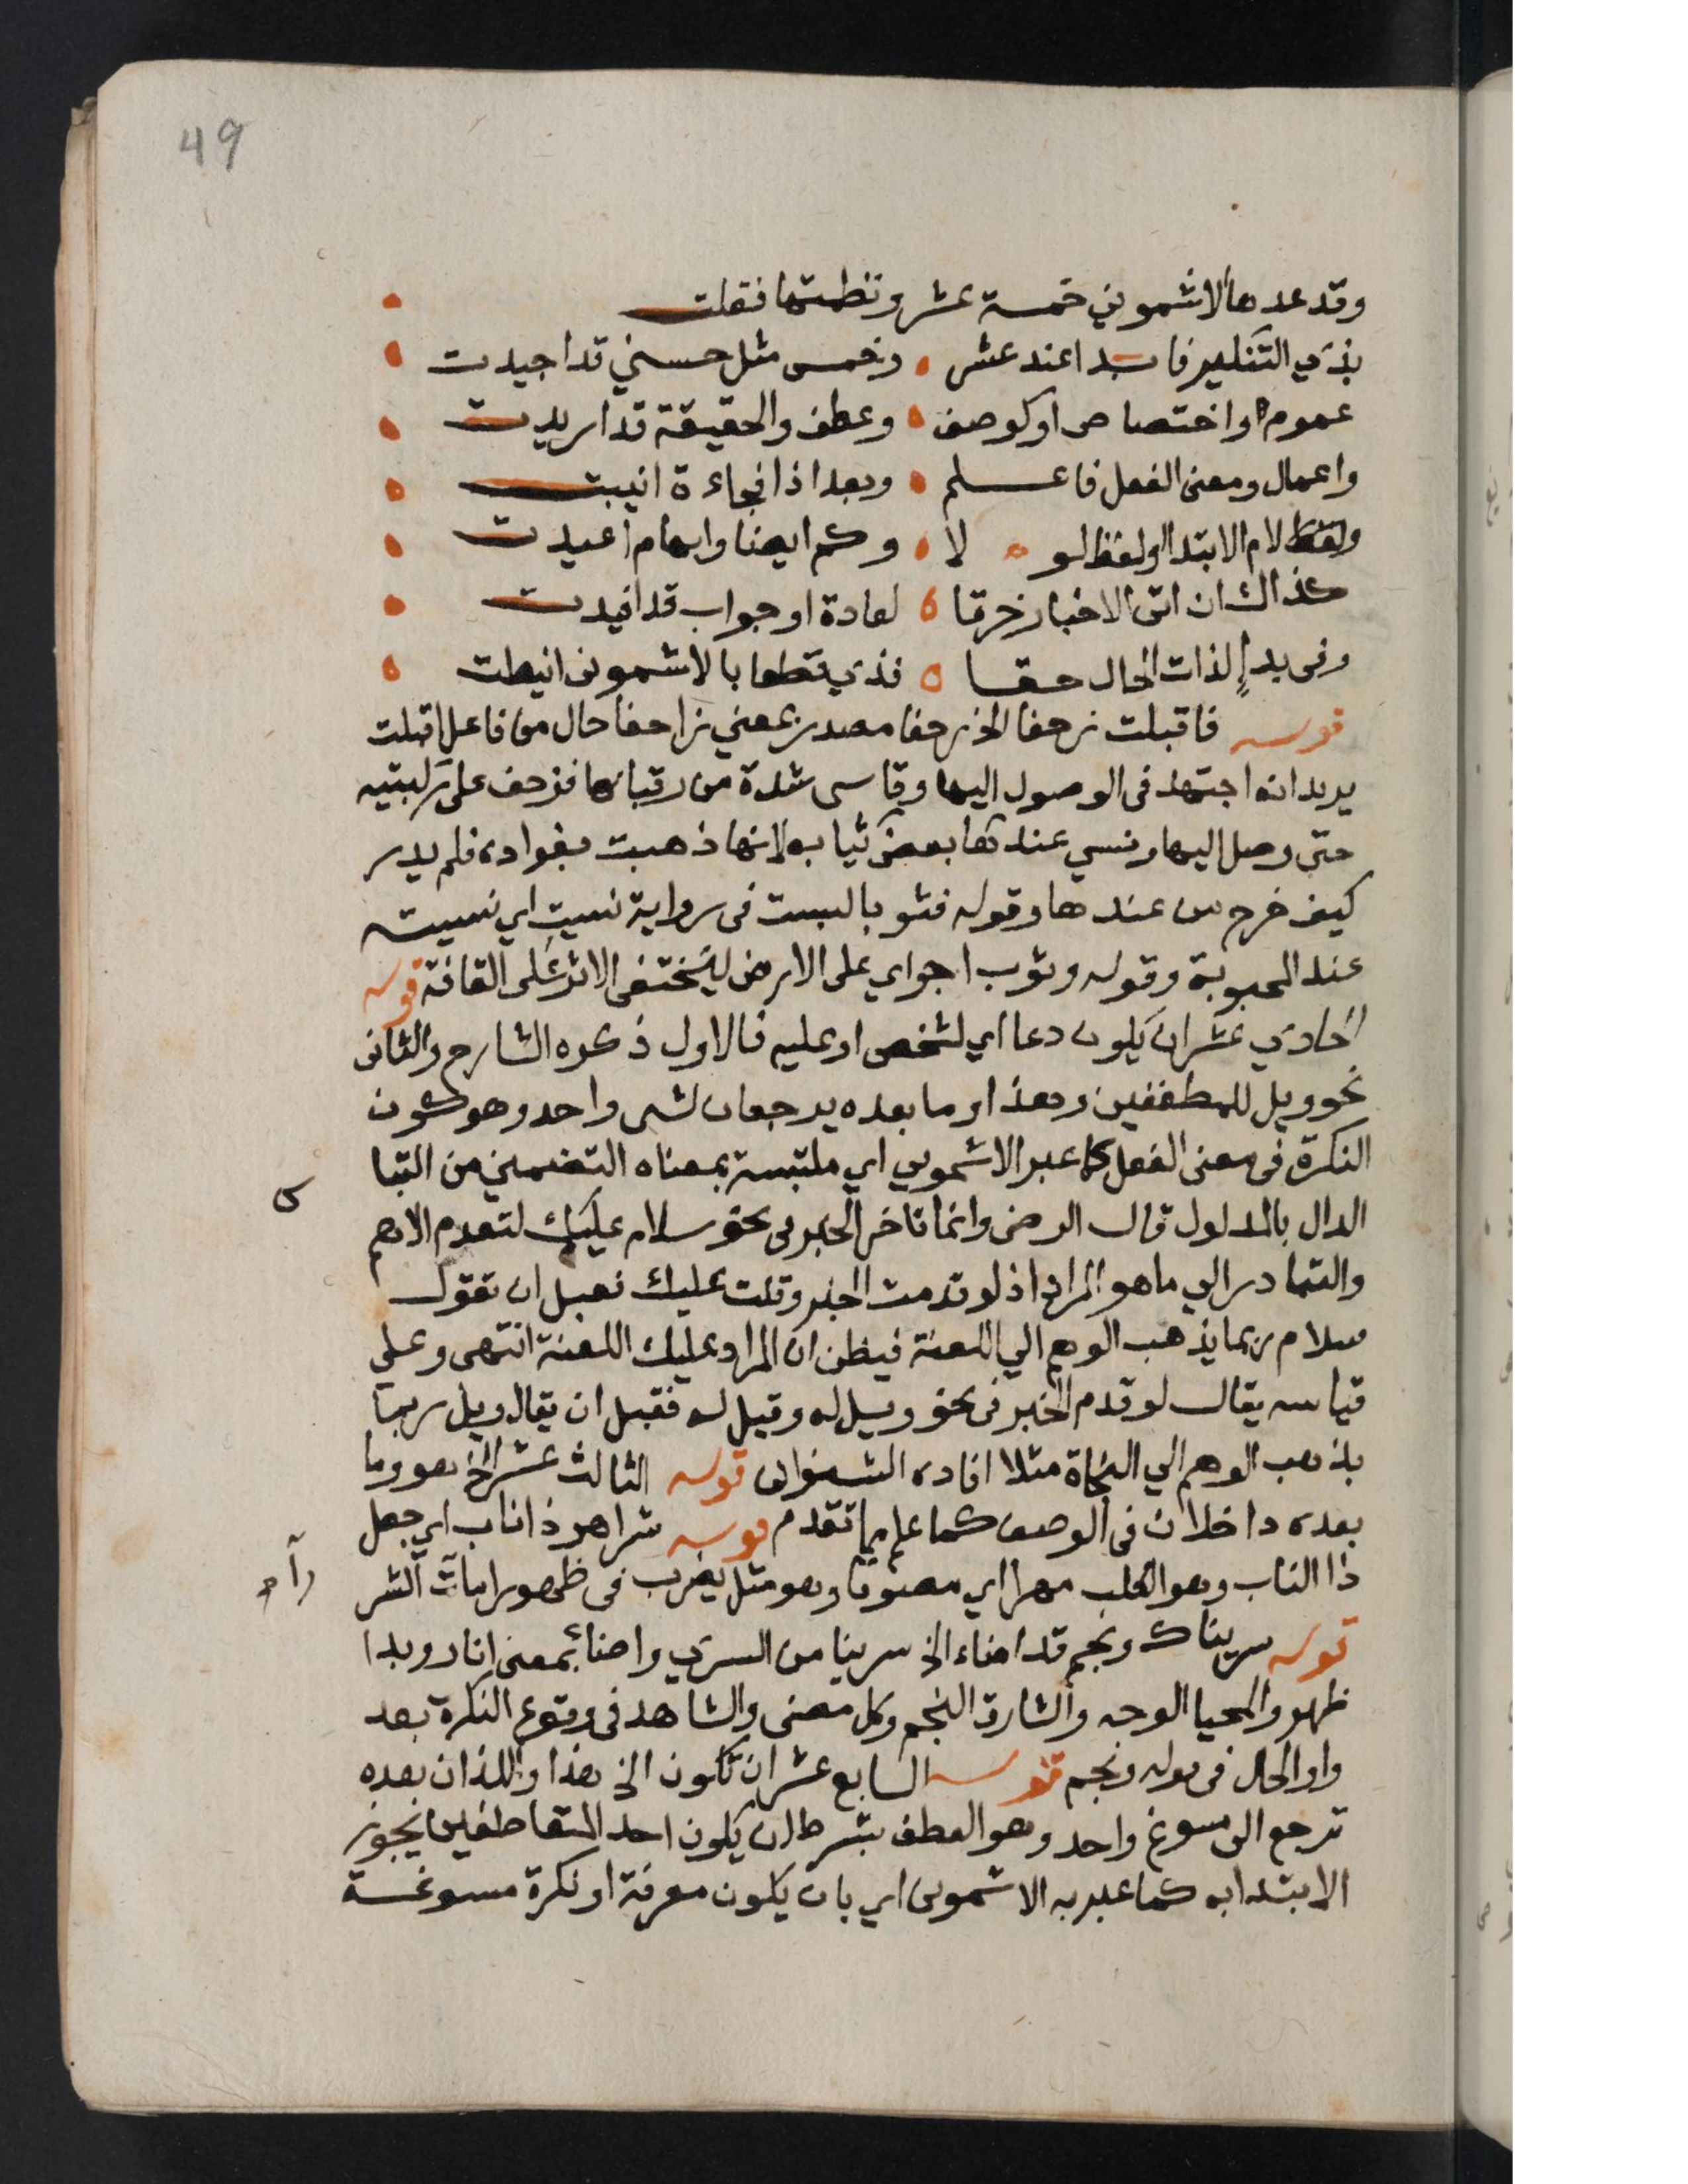 49
وقد عدها الاشموني خمسة عشر ونظمتها فقلت
بذي التنكير فابدا عند عشر وخمس مثل حسني قد اجيدت
عموم او اختصاص او كوصف وعطف والحقيقة قد اريدت
واعمال ومعنى الفعل فاعلم وبعد اذا فجاءة انيبت
ولفظ لام الابتدا ولفظ لو لا وكم ايضا وابهام اعيدت
كذاك ان اتى الاخبار خرقا لعادة او جواب قد افيدت
وفى بدإ لذات الحال حقا فذي قطعا بالاشمونى انيطت
قوله فاقبلت زحفا الخ زحفا مصدر بمعني زاحفا حال من فاعل اقبلت
يريد انه اجتهد فى الوصول اليها وقاسى شدة من رقبائها فزحف على ركبتيه
حتى وصل اليها ونسي عندها بعض ثيابه لانها ذهبت بفواده فلم يدر
كيف خرج من عندها وقوله فثوب لبست فى رواية نسيت اي نسيته
عند المحبوبة وقوله وثوب اجر اي على الارض ليختفى الاثر على القافة قوله
الحادي عشر ان يكون دعا اي لشخص او عليه فالاول ذكره الشارح والثانى
نحو ويل للمطففين وهذا وما بعده يرجعان لشى واحد وهو كون
النكرة فى معنى الفعل كما عبر الاشموني اي ملتبسة بمعناه التضمني من التبا
س
الدال بالمدلول قال الرضى وانما تاخر الخبر فى نحو سلام عليك لتقدم الاهم
والتبادر الي ما هو المراد اذ لو قدمت الخبر وقلت عليك فقبل ان تقول
سلام ربما يذهب الوهم الي اللعنة فيظن ان المراد عليك اللعنة انتهى وعلي
قياسه يقال لو قدم الخبر فى نحو ويل له وقيل له فقبل ان يقال ويل ربما
يذهب الوهم الي النجاة مثلا افاده الشنواني قوله الثالث عشر الخ هو وما
بعده داخلان فى الوصف كما علم مما تقدم قوله شر اهر ذا ناب اي جعل
ذا الناب وهو الكلب مهرا اي مصوتا وهو مثل يضرب فى ظهور امارات الشر
قوله سرينا ونجم قد اضاء الخ سرينا من السري واضا بمعنى انار وبدا
ظهر والمحيا الوجه والشارق النجم وكل مضى والشاهد فى وقوع النكرة بعد
واو الحال فى قوله ونجم قوله السابع عشر ان تكون الخ هذا واللذان بعده
ترجع الى مسوغ واحد وهو العطف بشرط ان يكون احد المتعاطفين يجوز
الابتدا به كما عبر به الاشمونى اي بان يكون معرفة او نكرة مسوغة